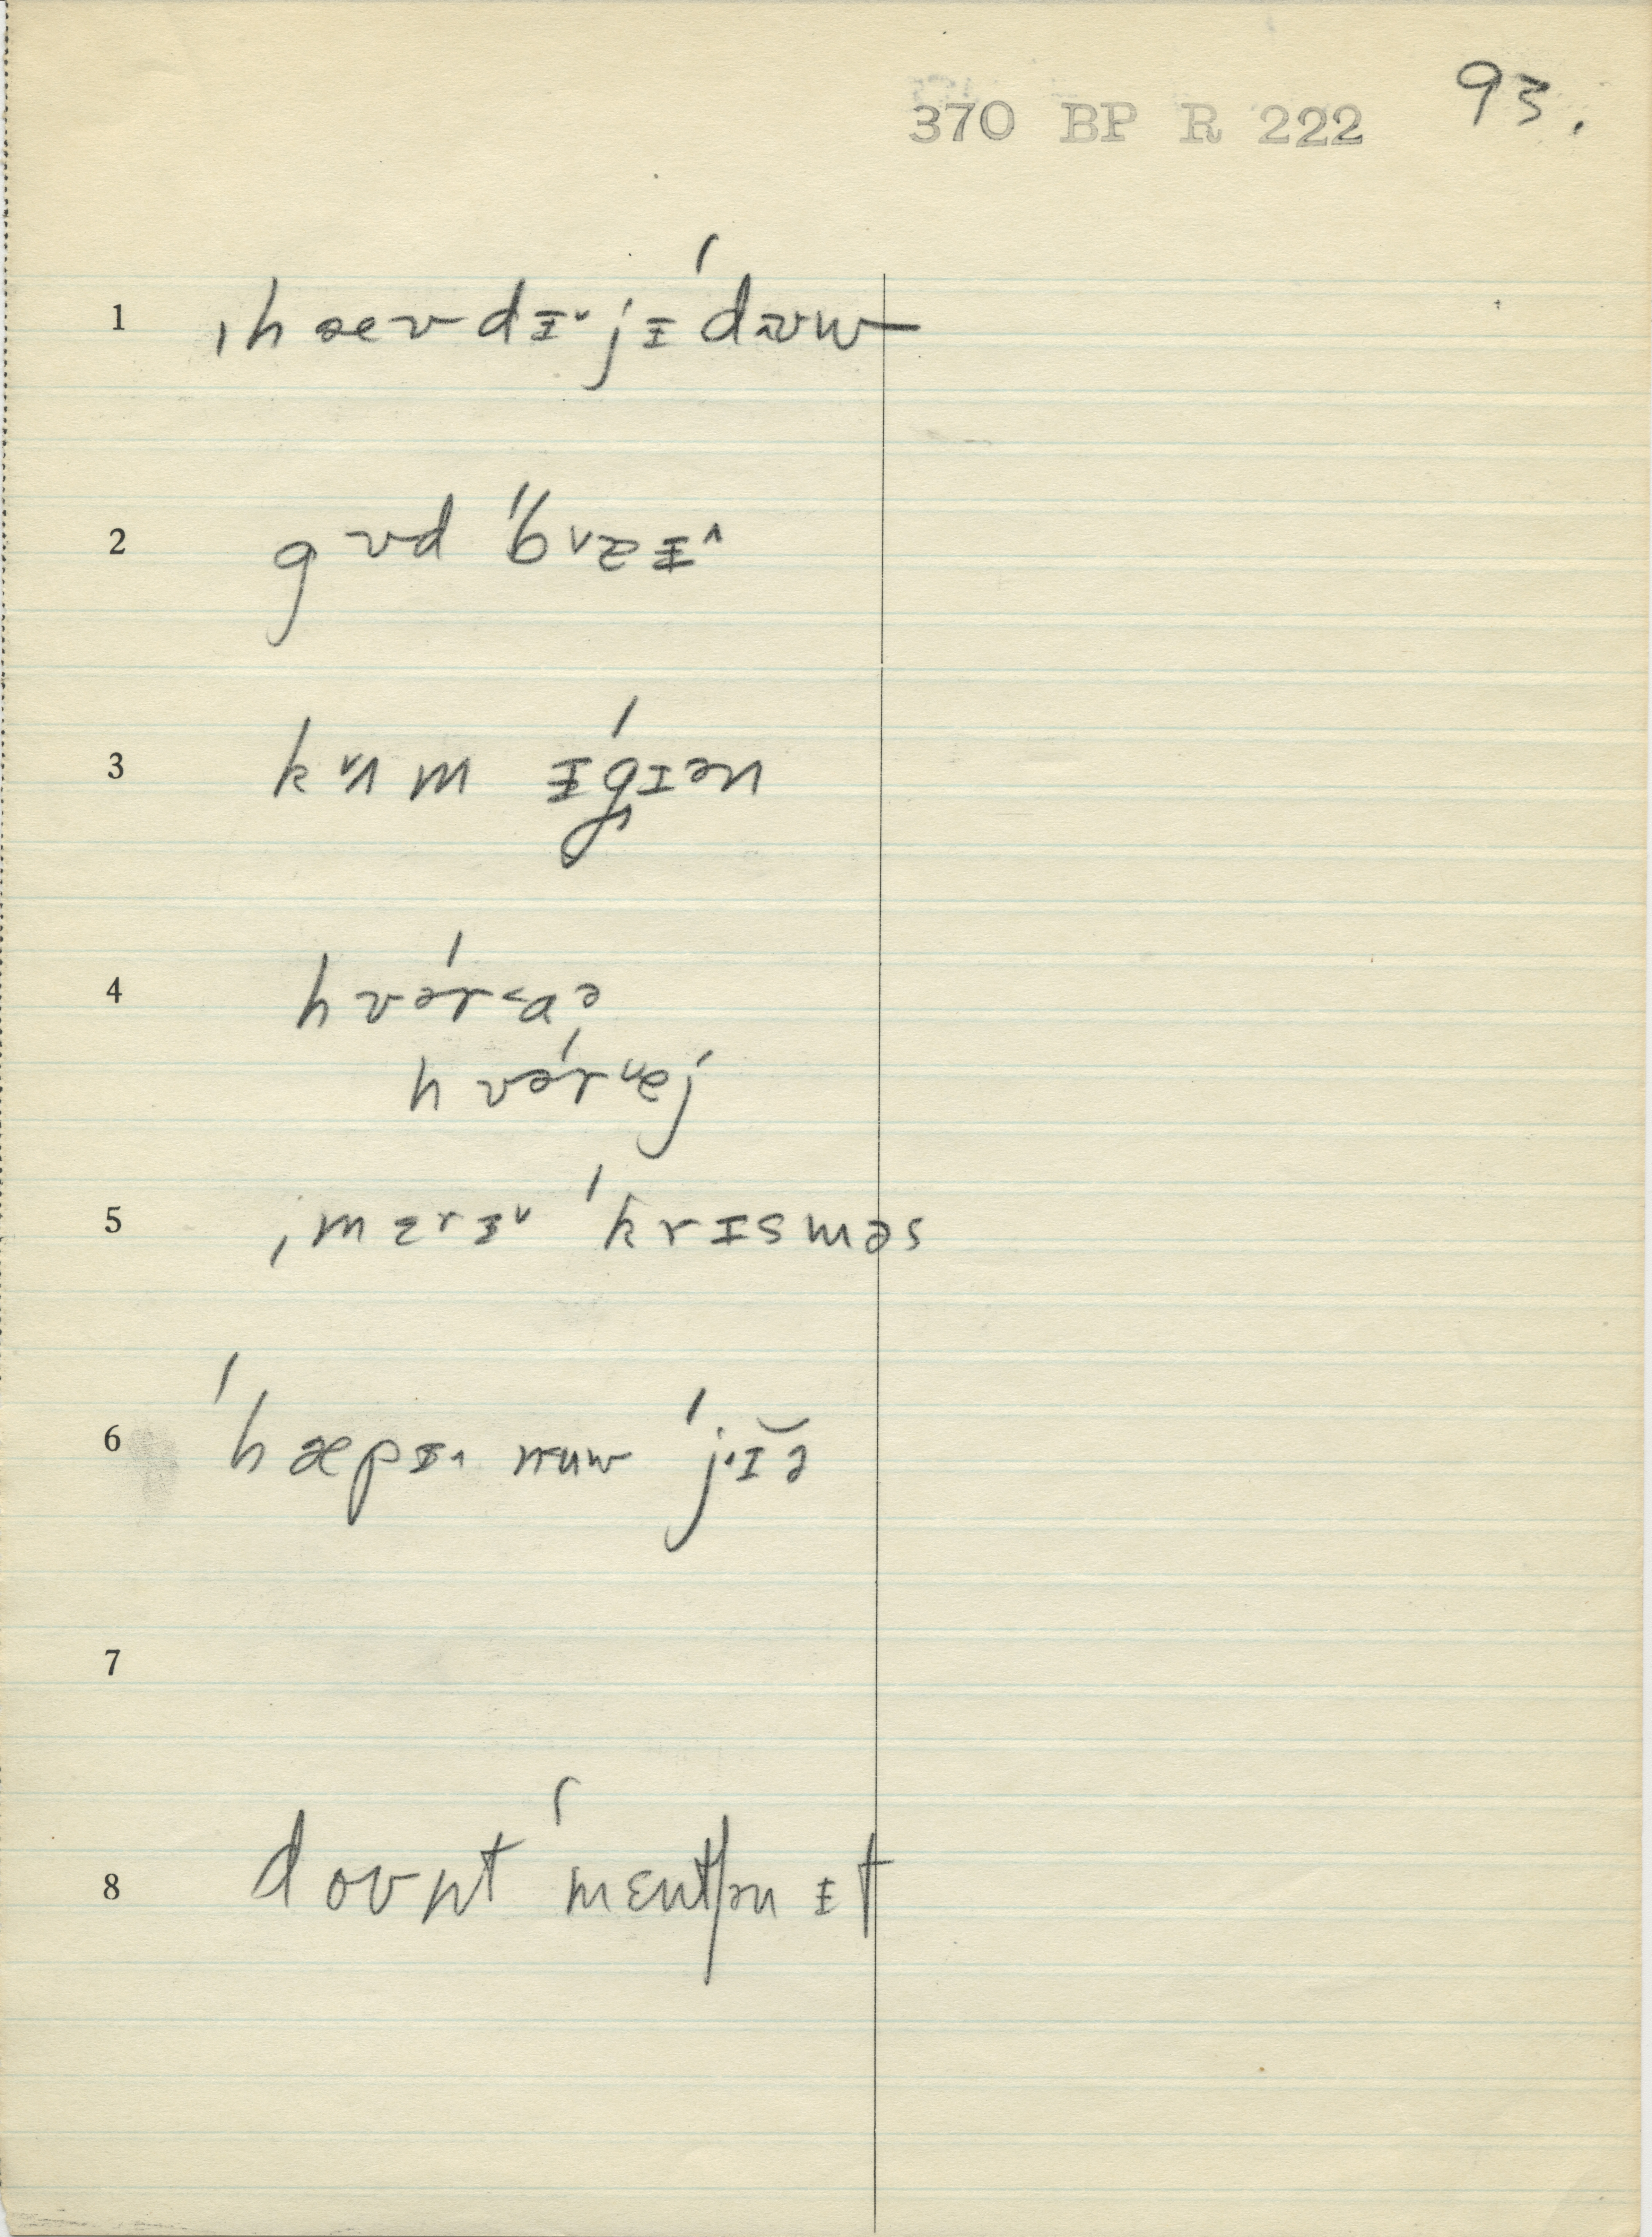 93.
370 BP R 222
1 ˌhæʊdɪ˅jɪˈdʊw
2 gʊd ˈbʌzɪ˄
3 kʌm ɨˈgɪən
4 hʊˈər<ɑə
hʊˈərɐj
5 ˌmɛrɨ˅ ˈkrɪsməs
6 ˈhæpɨ˄ nuw ˈjɪ̆ə
7
8 doʊnt ˈmɛntʃən ɨt